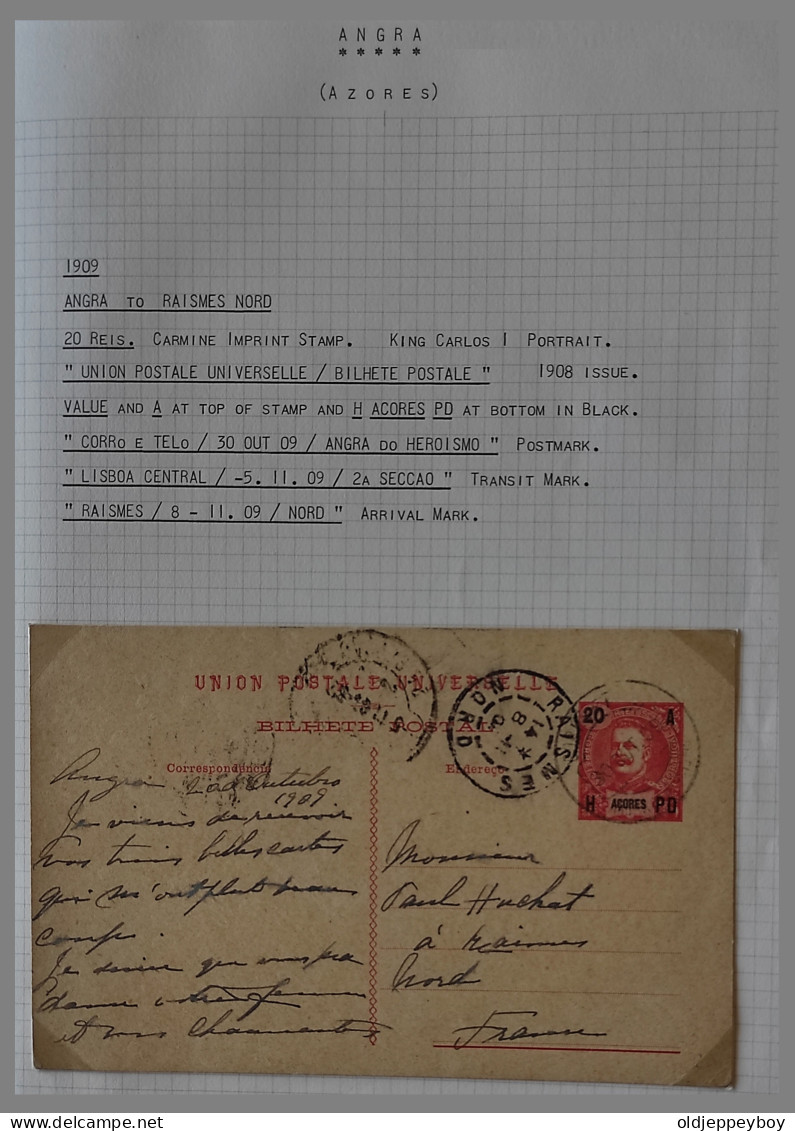 ANGRA
*****
(AZORES)
1909
ANGRA TO RAISMES NORD
20 REIS. CARMINE IMPRINT STAMP. KING CARLOS I PORTRAIT.
" UNION POSTALE UNIVERSELLE / BILHETE POSTALE " 1908 ISSUE.
VALUE AND A AT TOP OF STAMP AND H ACORES PD AT BOTTOM IN BLACK.
" CORRo E TELo / 30 OUT 09 / ANGRA DO HEROISMO " POSTMARK.
" LISBOA CENTRAL / -5. 11. 09 / 2A SECCAO " TRANSIT MARK.
" RAISMES / 8 - 11. 09 / NORD " ARRIVAL MARK.
UNION POSTALE UNIVERSELLE
BILHETE POSTAL
Correspondencia
Endereço
RAISMES
NORD
20 A
H AÇORES PD
Angra Outubro
1909
Je viens de recevoir
vos trois belles cartes
qui m'ont plut beau
coup.
Je desire que vous
votre
et vos charmantes
Monsieur
Paul Huchat
à Raismes
Nord
France
oldjeppeyboy